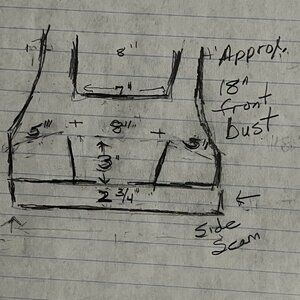 8"
7"
Approx.
18"
front
bust
5" + 8" + 5"
3"
2 3/4"
side
seam